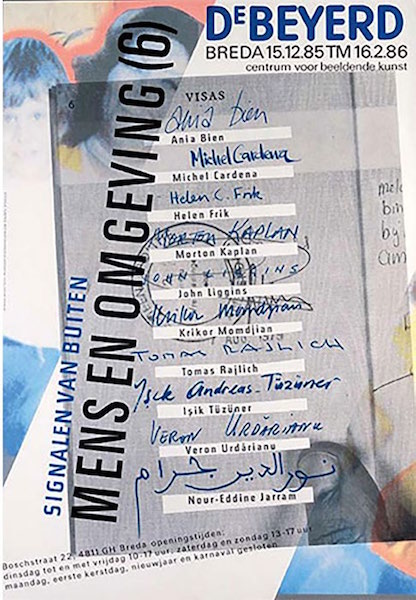 DeBEYERD
BREDA 15.12.85 TM 16.2.86
centrum voor beeldende kunst
MENS EN OMGEVING (6)
SIGNALEN VAN BUITEN
6 VISAS
Ania Bien
Ania Bien
Michel Cardena
Michel Cardena
Helen C. Frik
Helen Frik
MORTON KAPLAN
Morton Kaplan
JOHN LIGGINS
John Liggins
Krikor Momdjian
Krikor Momdjian
TOMAS RAJLICH
Tomas Rajlich
Işık Andreas-Tüzüner
Işik Tüzüner
VERON URDĂRIANU
Veron Urdărianu
نور الدين جرام
Nour-Eddine Jarram
Boschstraat 22, 4811 GH Breda openingstijden:
dinsdag tot en met vrijdag 10-17 uur, zaterdag en zondag 13-17 uur
maandag, eerste kerstdag, nieuwjaar en karnaval gesloten